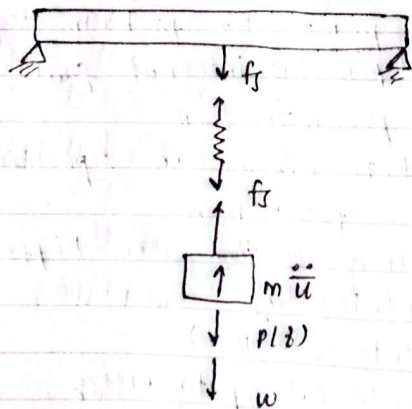 fs
fs
mü
p(t)
w